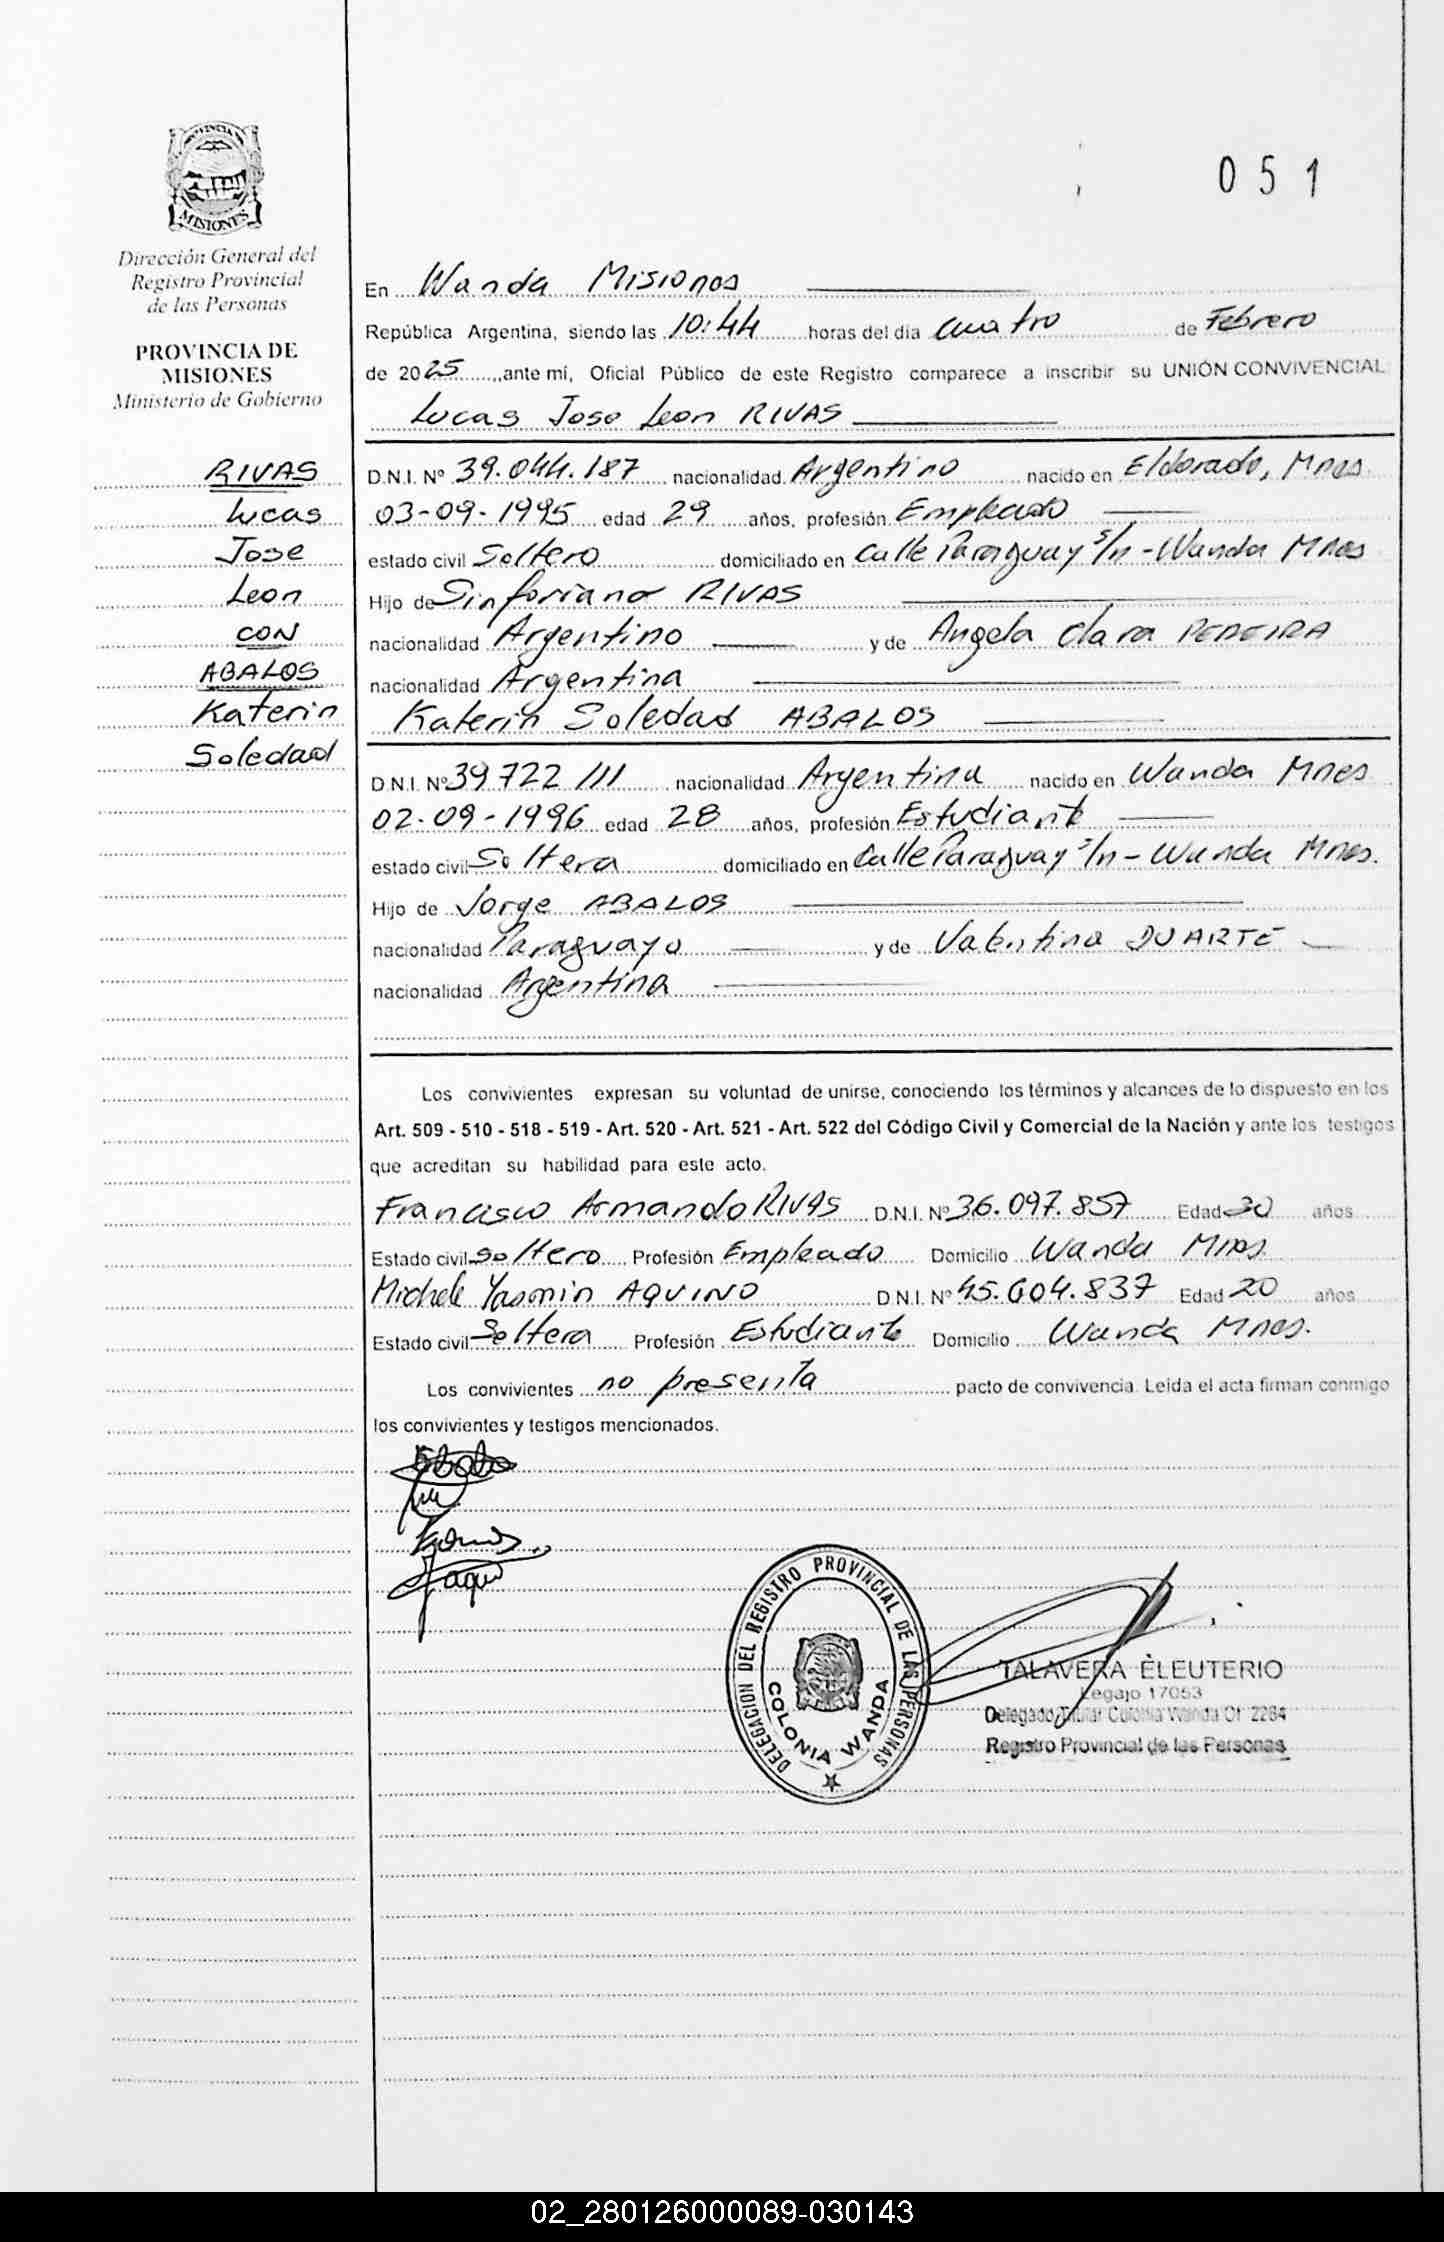 PROVINCIA DE
MISIONES
Dirección General del
Registro Provincial
de las Personas
PROVINCIA DE
MISIONES
Ministerio de Gobierno
RIVAS
Lucas
Jose
Leon
CON
ABALOS
Katerin
Soledad
051
En Wanda Misiones
República Argentina, siendo las 10:44 horas del día cuatro de Febrero
de 2025, ante mí, Oficial Público de este Registro comparece a inscribir su UNIÓN CONVIVENCIAL:
Lucas Jose Leon RIVAS
D.N.I. Nº 39.044.187 nacionalidad Argentino nacido en Eldorado, Mnes.
03-09-1995 edad 29 años, profesión Empleado
estado civil Soltero domiciliado en Calle Paraguay s/n - Wanda Mnes
Hijo de Sinforiano RIVAS
nacionalidad Argentino y de Angela Clara PEREIRA
nacionalidad Argentina
Katerin Soledad ABALOS
D.N.I. Nº 39 722 111 nacionalidad Argentina nacido en Wanda Mnes
02-09-1996 edad 28 años, profesión Estudiante
estado civil Soltera domiciliado en Calle Paraguay s/n - Wanda Mnes.
Hijo de Jorge ABALOS
nacionalidad Paraguayo y de Valentina DUARTE
nacionalidad Argentina
Los convivientes expresan su voluntad de unirse, conociendo los términos y alcances de lo dispuesto en los
Art. 509 - 510 - 518 - 519 - Art. 520 - Art. 521 - Art. 522 del Código Civil y Comercial de la Nación y ante los testigos
que acreditan su habilidad para este acto.
Francisco Armando RIVAS D.N.I. Nº 36.097.857 Edad 30 años
Estado civil soltero Profesión Empleado Domicilio Wanda Mnes.
Michele Yasmin AQUINO D.N.I. Nº 45.604.837 Edad 20 años
Estado civil Soltera Profesión Estudiante Domicilio Wanda Mnes.
Los convivientes no presenta pacto de convivencia. Leída el acta firman conmigo
los convivientes y testigos mencionados.
DELEGACION DEL REGISTRO PROVINCIAL DE LAS PERSONAS
COLONIA WANDA
TALAVERA ELEUTERIO
Legajo 17053
Delegado Titular Colonia Wanda Of. 2284
Registro Provincial de las Personas
02_280126000089-030143